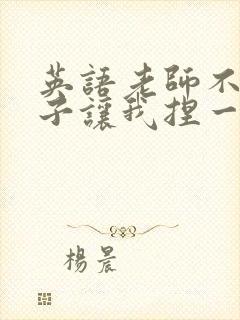 英語老師不
子讓我捏一
楊晨